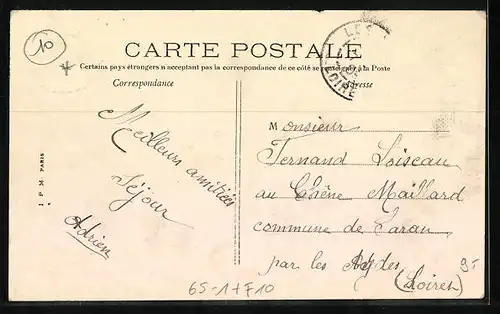 10
CARTE POSTALE
Certains pays étrangers n'acceptant pas la correspondance de ce côté se renseigner à la Poste
Correspondance
Adresse
Meilleurs amitiées
Séjour
Adrien
J P M PARIS
Monsieur
Fernand Loiseau
au Chêne Maillard
commune de Saran
par les Aydes
(Loiret)
65-1+F10